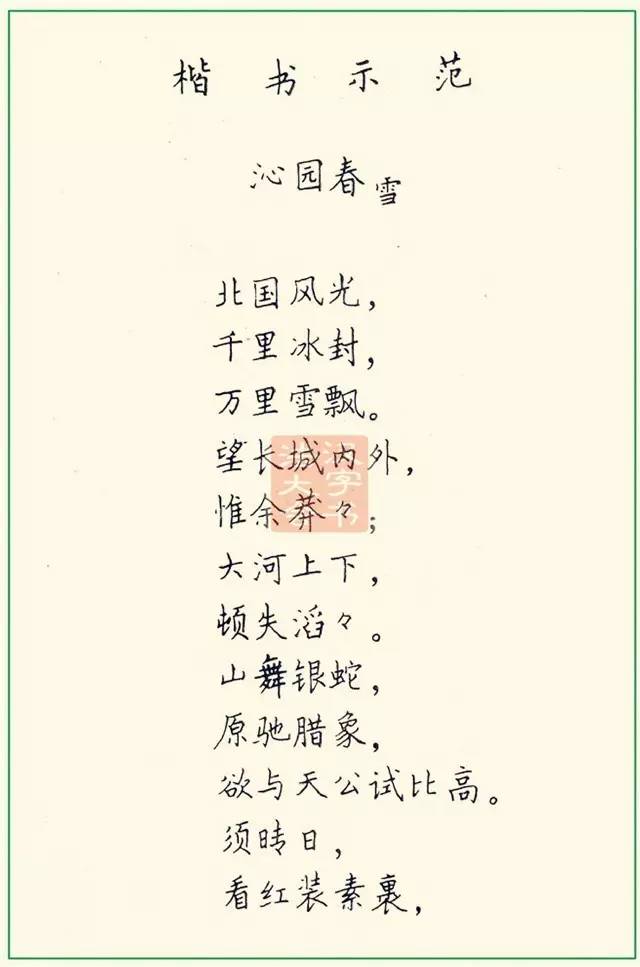 楷书示范
沁园春 雪
北国风光，
千里冰封，
万里雪飘。
望长城内外，
惟余莽々；
大河上下，
顿失滔々。
山舞银蛇，
原驰腊象，
欲与天公试比高。
须晴日，
看红装素裹，